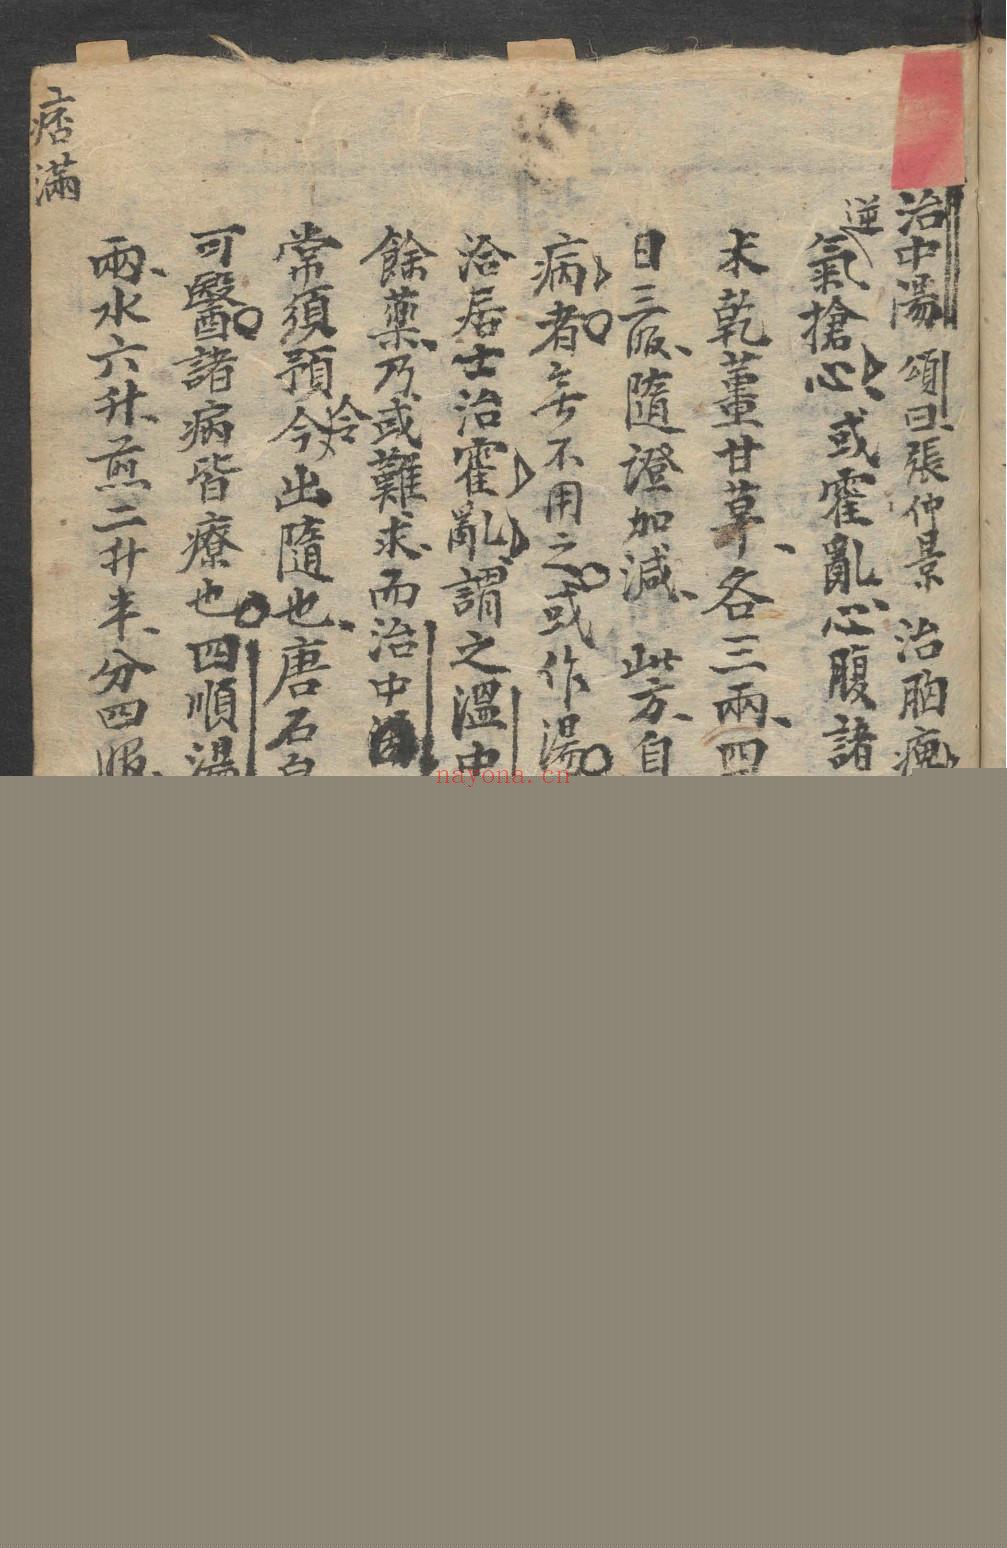 治中湯 頌曰張仲景 治胸痺
逆
氣搶心或霍亂心腹諸
术乾薑甘草各三兩四
日三服隨證加減 此方自
病者無不用之或作湯
治居士治霍亂謂之溫中
餘藥乃或難求而治中湯
常須預令出隨也唐石泉
合
可醫諸病皆療也四順湯
兩水六升煎二升半分四服
痞滿
nayona.cn